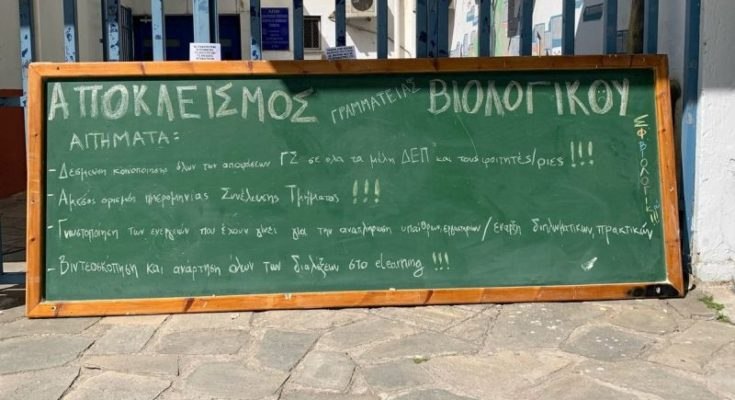 ΑΠΟΚΛΕΙΣΜΟΣ ΓΡΑΜΜΑΤΕΙΑΣ ΒΙΟΛΟΓΙΚΟΥ
ΑΙΤΗΜΑΤΑ:
- Δέσμευση κοινοποίησης όλων των αποφάσεων ΓΣ σε όλα τα μέλη ΔΕΠ και τους φοιτητές/ριες !!!
- Άμεσος ορισμός ημερομηνίας Συνέλευσης Τμήματος !!!
- Γνωστοποίηση των ενεργειών που έχουν γίνει για την αναπλήρωση υπαίθρων, εργαστηρίων / έναρξη διπλωματικών, πρακτικών
- Βιντεοσκόπηση και ανάρτηση όλων των διαλέξεων στο eLearning !!!
ΣΦ ΒΙΟΛΟΓΙΚ